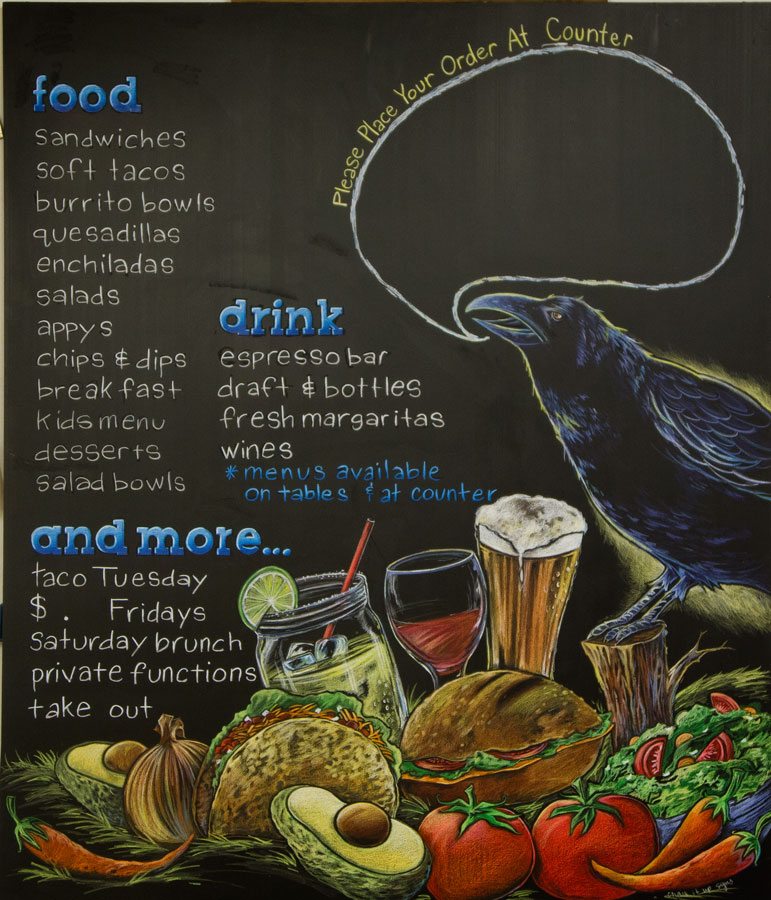 Please Place Your Order At Counter
food
sandwiches
soft tacos
burrito bowls
quesadillas
enchiladas
salads
appys
chips & dips
breakfast
kids menu
desserts
salad bowls
drink
espresso bar
draft & bottles
fresh margaritas
wines
*menus available
on tables & at counter
and more...
taco Tuesday
$ . Fridays
saturday brunch
private functions
take out
chalk it up signs